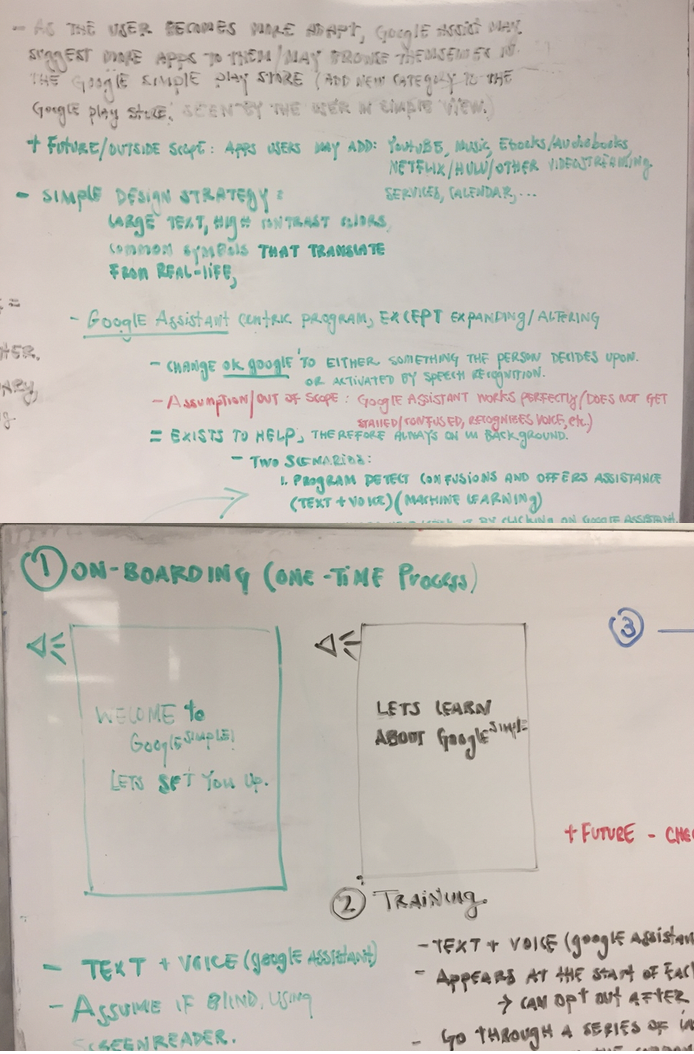 - AS THE USER BECOMES MORE ADAPT, Google ASSIST MAY
SUGGEST MORE APPS TO THEM/MAY BROWSE THEMSELVES IN
THE Google SIMPLE PLAY STORE (ADD NEW CATEGORY TO THE
Google play STORE, SEEN BY THE USER IN SIMPLE VIEW.)
+ FUTURE/OUTSIDE SCOPE: APPS USERS MAY ADD: YOUTUBE, MUSIC, Ebooks/Audiobooks,
NETFLIX/HULU/OTHER VIDEOSTREAMING
SERVICES, CALENDAR,...
- SIMPLE DESIGN STRATEGY:
LARGE TEXT, HIGH CONTRAST COLORS,
COMMON SYMBOLS THAT TRANSLATE
FROM REAL-LIFE,
- Google Assistant CENTRIC PROGRAM, EXCEPT EXPANDING/ALTERING
- CHANGE OK google TO EITHER SOMETHING THE PERSON DECIDES UPON.
OR ACTIVATED BY SPEECH RECOGNITION.
- Assumption/OUT OF SCOPE: Google ASSISTANT WORKS PERFECTLY (DOES NOT GET
STALLED/CONFUSED, RECOGNISES VOICE, etc.)
= EXISTS TO HELP, THEREFORE ALWAYS ON IN BACKGROUND.
- TWO SCENARIOS:
1. PROGRAM DETECT CONFUSIONS AND OFFERS ASSISTANCE
(TEXT + VOICE) (MACHINE LEARNING)
IT BY CLICKING ON GOOGLE ASSISTANT
1 ON-BOARDING (ONE-TIME Process)
3
WELCOME to
Google SIMPLE!
LETS SET YOU UP.
LETS LEARN
ABOUT Google SIMPLE
+ FUTURE -
2 TRAINING.
- TEXT + VOICE (google ASSISTANT)
- ASSUME IF BLIND, USING
SCREENREADER.
- TEXT + VOICE (google Assistan
- APPEARS AT THE START OF EAC
→ CAN OPT OUT AFTER
- GO THROUGH A SERIES OF